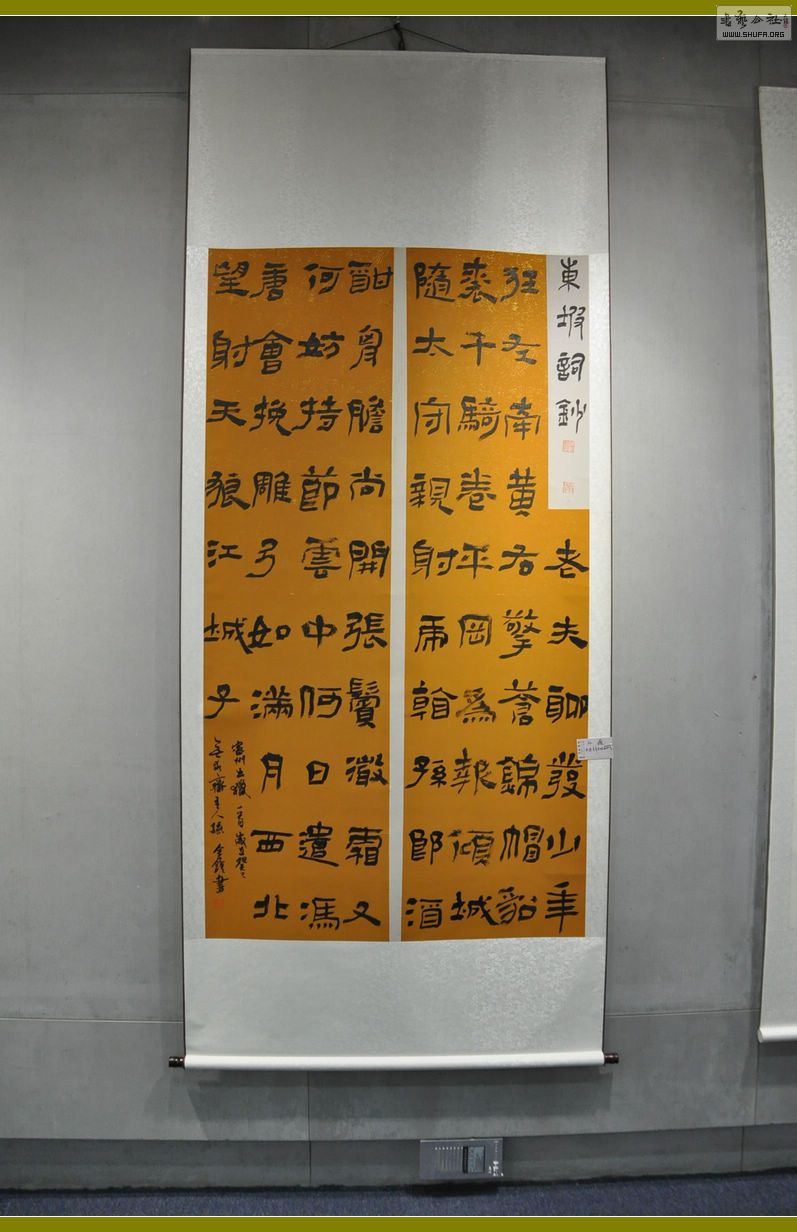 東坡詞鈔
老夫聊發少年
狂左牽黃右擎蒼錦帽貂
裘千騎卷平岡為報傾城
隨太守親射虎看孫郎酒
酣胷膽尚開張鬢微霜又
何妨持節雲中何日遣馮
唐會挽雕弓如滿月西北
望射天狼江城子
密州出獵一首歲在癸巳
齋主人孫書
书艺公社
WWW.SHUFA.ORG